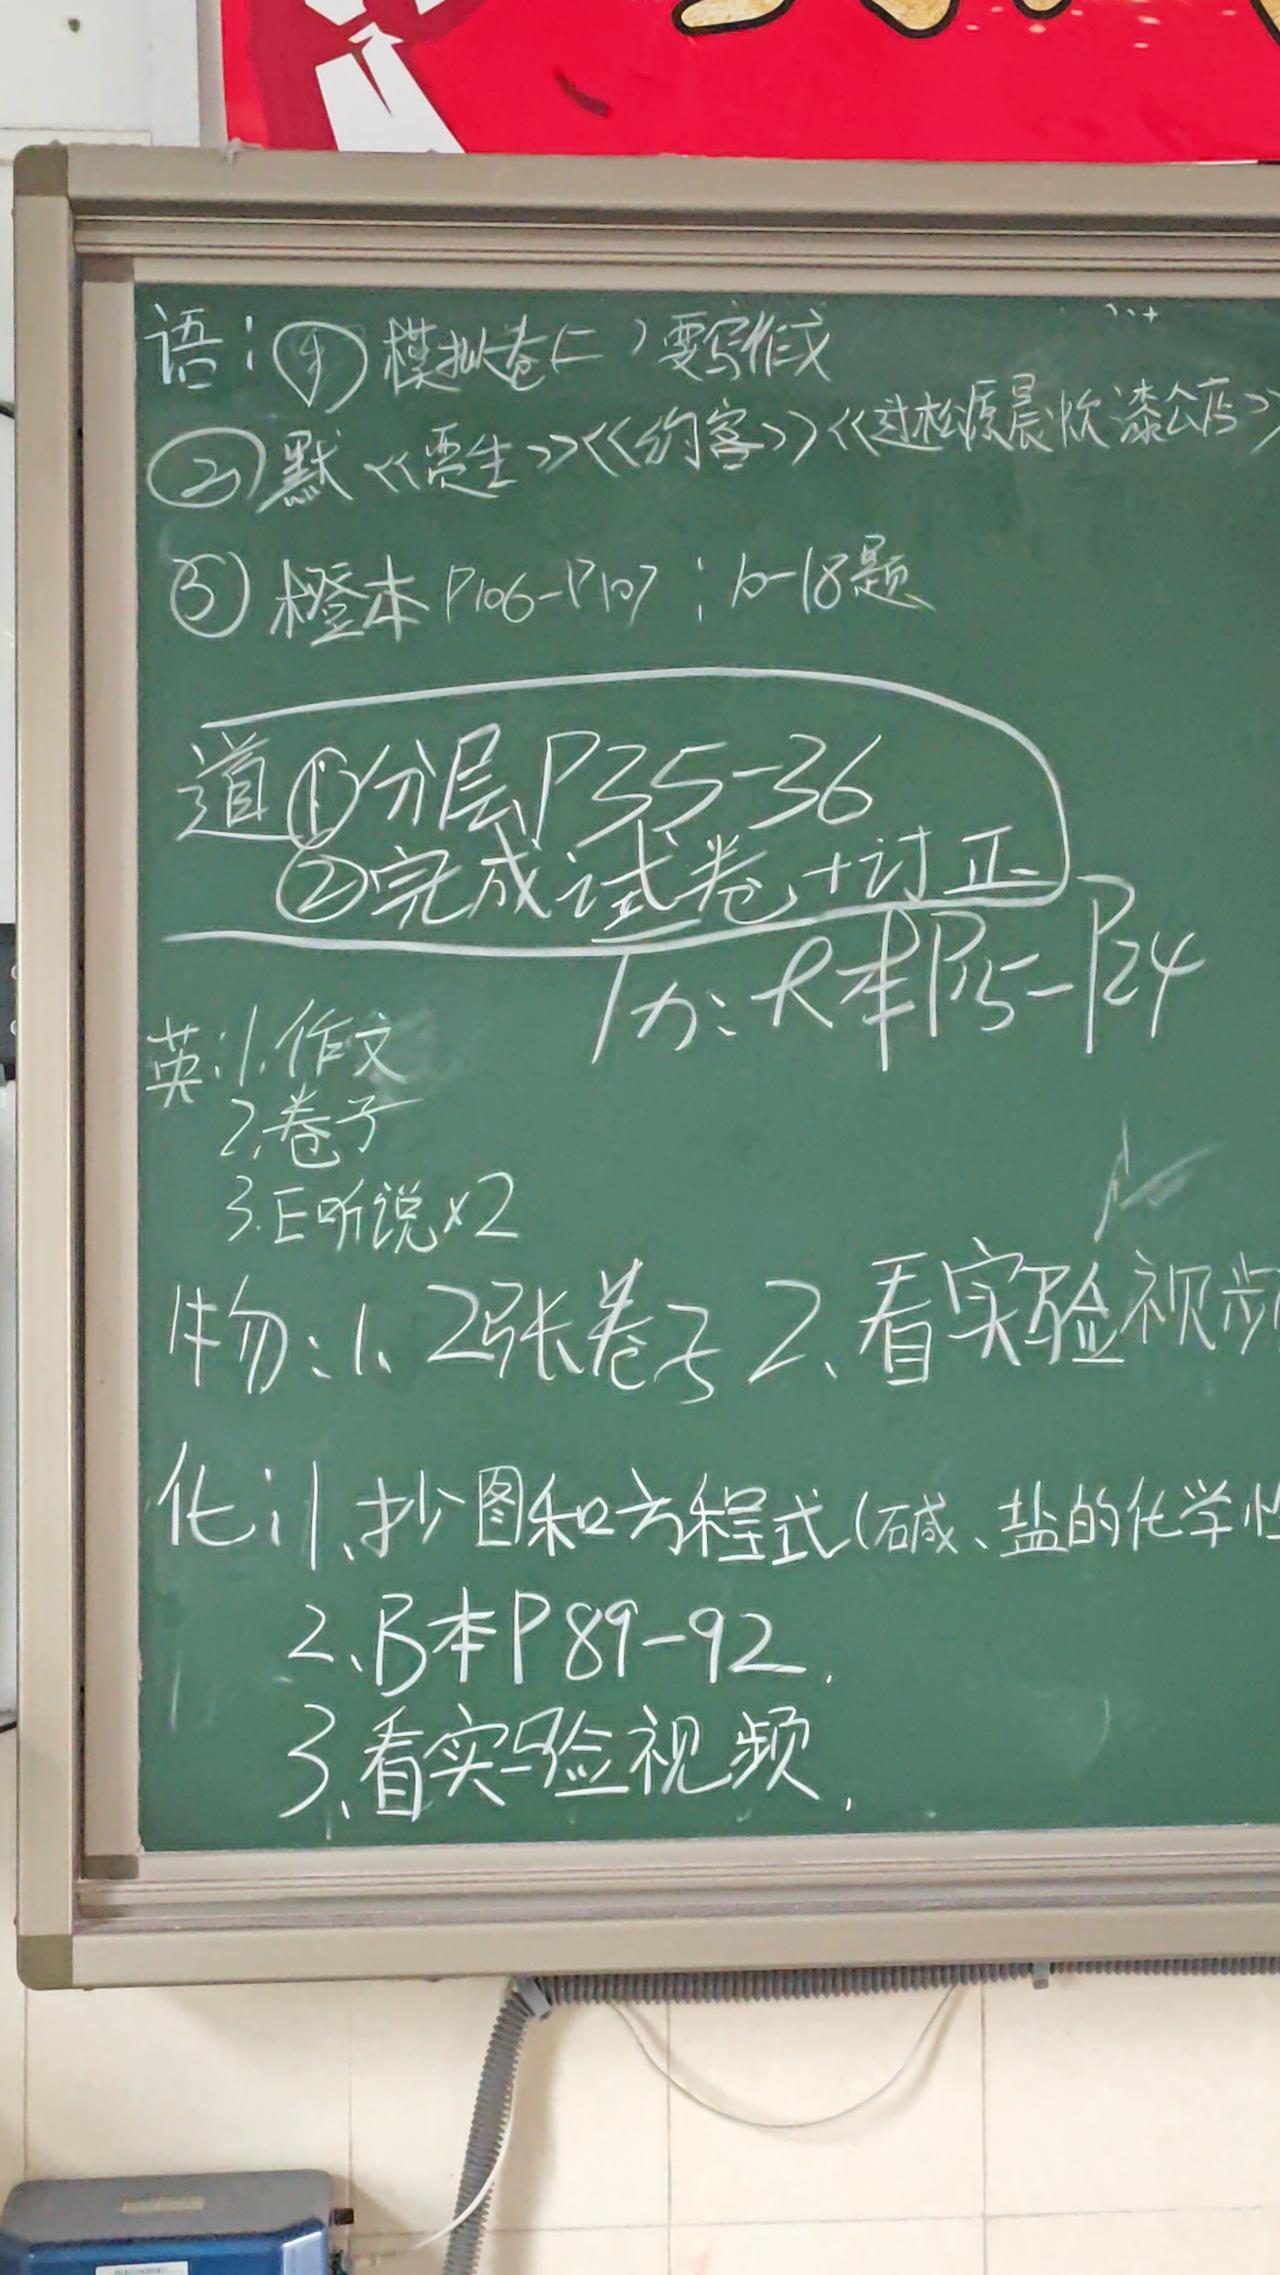 语：① 模拟卷(二) 要写作文
② 默《贾生》《约客》《过松源晨炊漆公店》
③ 橙本P106-P107：10-18题
道①分层P35-36
②完成试卷+订正
历：大本P15-P24
英：1.作文
2.卷子
3.E听说×2
物：1、2张卷子 2、看实验视频
化：1、抄图和方程式(碱、盐的化学性
2、B本P89-92.
3、看实验视频.